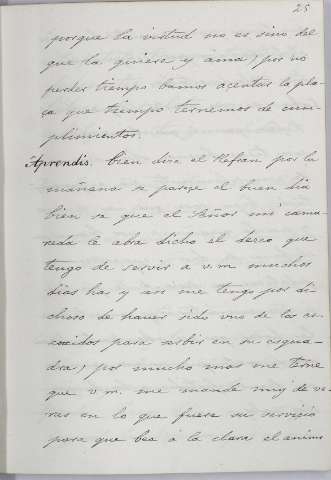 25
porque la virtud no es sino del
que la quiere y ama; por no
perder tiempo bamos açentar la pla-
ça que tiempo ternemos de cum-
plimientos.
Aprendis. bien dise el Refran por la
mañana se pareçe el buen dia
bien se que el Señor mi cama-
rada le abra dicho el deseo que
tengo de servir a v.m. muchos
dias ha, y asi me tengo por di-
choso de haver sido uno de los es-
cojidos para serbir en su esqua-
dra; por mucho mas me terne
que v.m. me mande muy de ve-
ras en lo que fuere su servicio
para que bea a la clara el animo